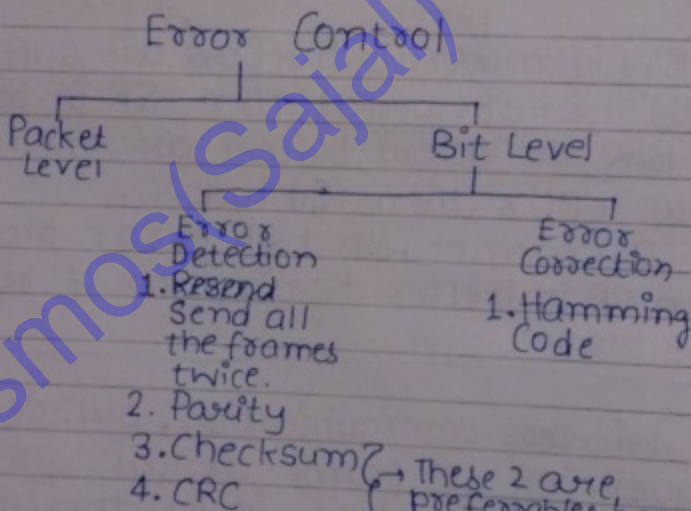 Error Control
Packet
Level
Bit Level
Error
Detection
1. Resend
Send all
the frames
twice.
2. Parity
3. Checksum
4. CRC
→ These 2 are
preferrable
Error
Correction
1. Hamming
Code
smos(Sajal)